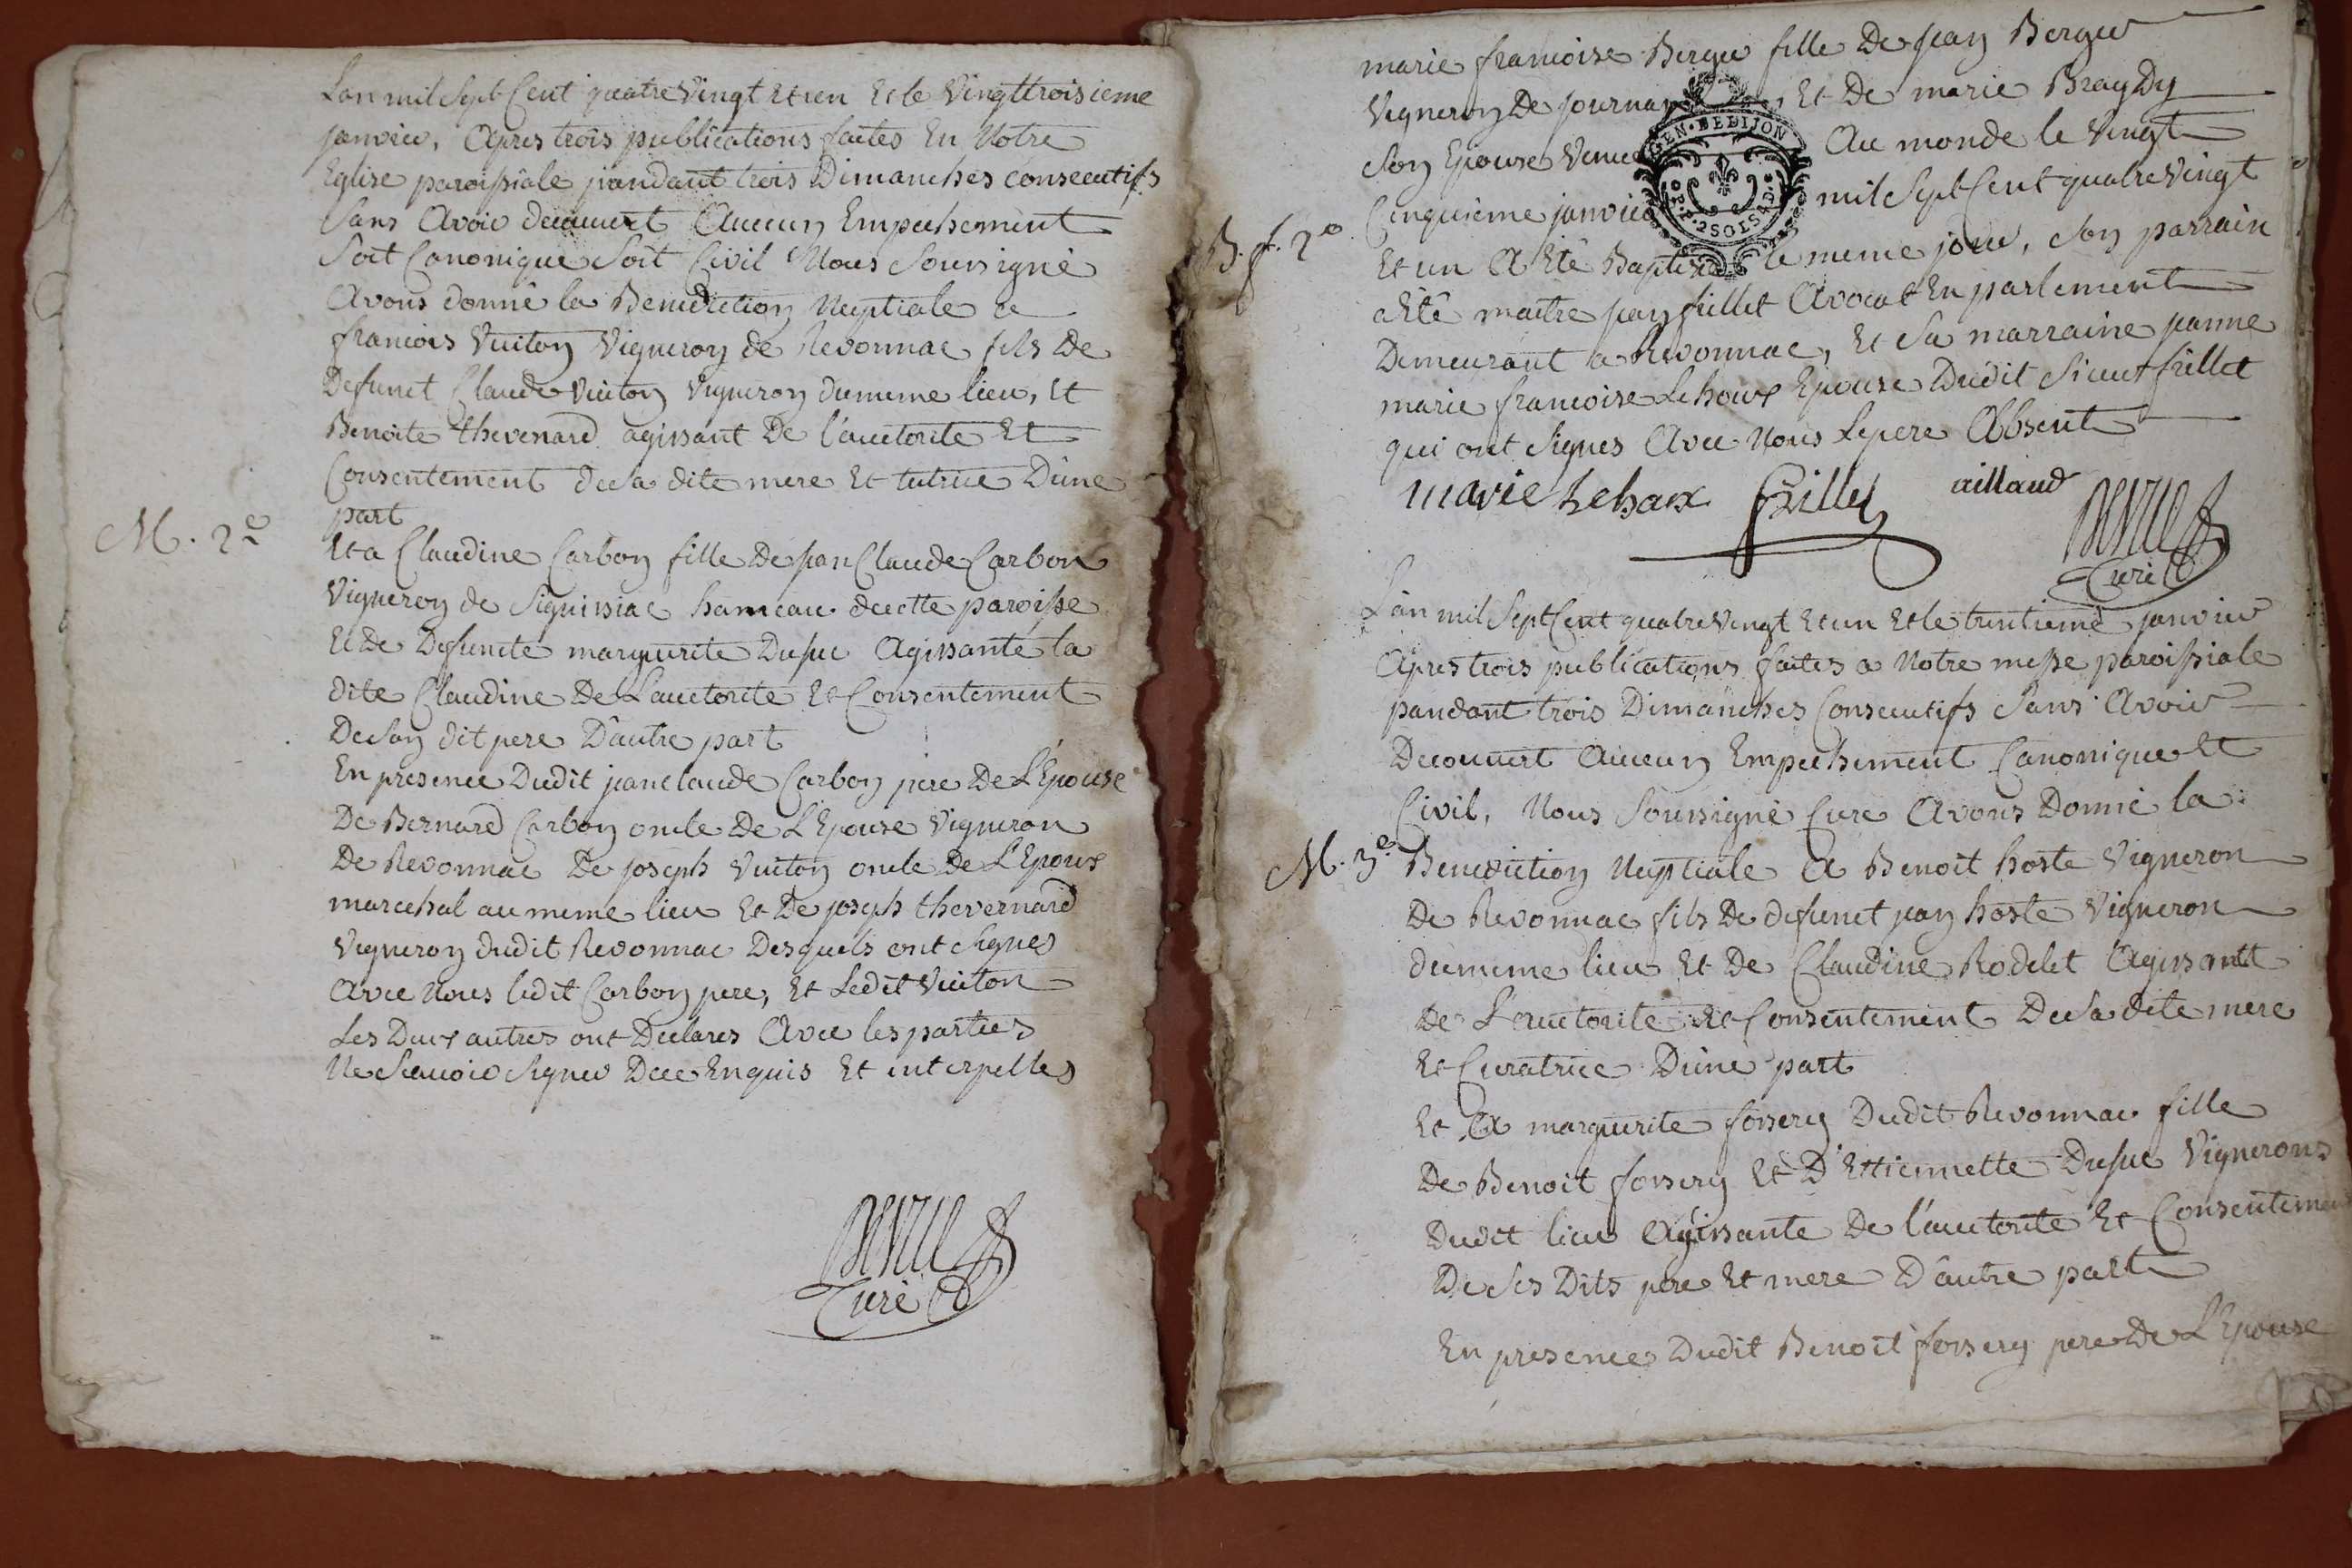 L'an mil Sept Cent quatre Vingt Et un Et le Vingt troisieme
janvier, Apres trois publications faites En Notre
Eglise paroissiale pandant trois Dimanches consecutifs
Sans Avoir decouvert Aucun Empechement
Soit Canonique Soit Civil Nous Soussigné
Avons donné la Benediction Nuptiale a
francois Vuiton Vigneron de Revonnac fils De
Defunct Claude Vuiton Vigneron du meme lieu, Et
Benoite thevenard agissant De l'auctorite Et
Consentement de Sa dite mere Et tutrice D'une
part
M. 2e
Et a Claudine Carbon fille De jean Claude Carbon
Vigneron de Siguissiac hameau de cette paroisse
Et De Defuncte marguerite Dusuc Agissante la
dite Claudine De L'auctorite Et Consentement
De Son dit pere D'autre part
En presence Dudit jean claude Carbon pere De L'Epouse
De Bernard Carbon oncle De L'Epouse Vigneron
De Revonnac De joseph Vuiton oncle De L'Epoux
marechal au meme lieu Et De joseph thevernard
Vigneron dudit Revonnac Desquels ont Signes
Avec Nous ledit Carbon pere, Et Ledit Vuiton
Les Deux autres ont Declares Avec les parties
Ne Scavoir Signer De ce Enquis Et interpelles
Curé
marie francoise Berger fille De jean Berger
Vigneron De journan Et De marie BrayDy
Son Epouse Venue Au monde le Vingt
GEN. DE DIJON
2 SOLS
B. f. 2e
Cinquieme janvier mil Sept Cent quatre Vingt
Et un A Eté Baptisée le meme jour, Son parrain
a Eté maitre jean frillet Avocat En parlement
Demeurant a Revonnac, Et Sa marraine jeanne
marie francoise Lehoux Epouse Dudit Sieur frillet
qui ont Signes Avec Nous Le pere Absent
marie Lehoux Frillet aillaud
Curé
L'an mil Sept Cent quatre Vingt Et un Et le trentieme janvier
Apres trois publications faites a Notre messe paroissiale
pandant trois Dimanches Consecutifs Sans Avoir
Decouvert Aucun Empechement Canonique Et
Civil, Nous Soussigné Curé Avons Donné la
M. 3e
Benediction Nuptiale A Benoit hoste Vigneron
De Revonnac fils De defunct jean hoste Vigneron
du meme lieu Et De Claudine Rodelet Agissant
De L'auctorite Et Consentement De Sa dite mere
Et Curatrice D'une part
Et A marguerite forsery Dudit Revonnac fille
De Benoit forsery Et D'Ettiennette Dusuc Vignerons
Dudit lieu Agissante De l'auctorite Et Consentement
De Ses Dits pere Et mere D'autre part
En presence Dudit Benoit forsery pere De L'Epouse